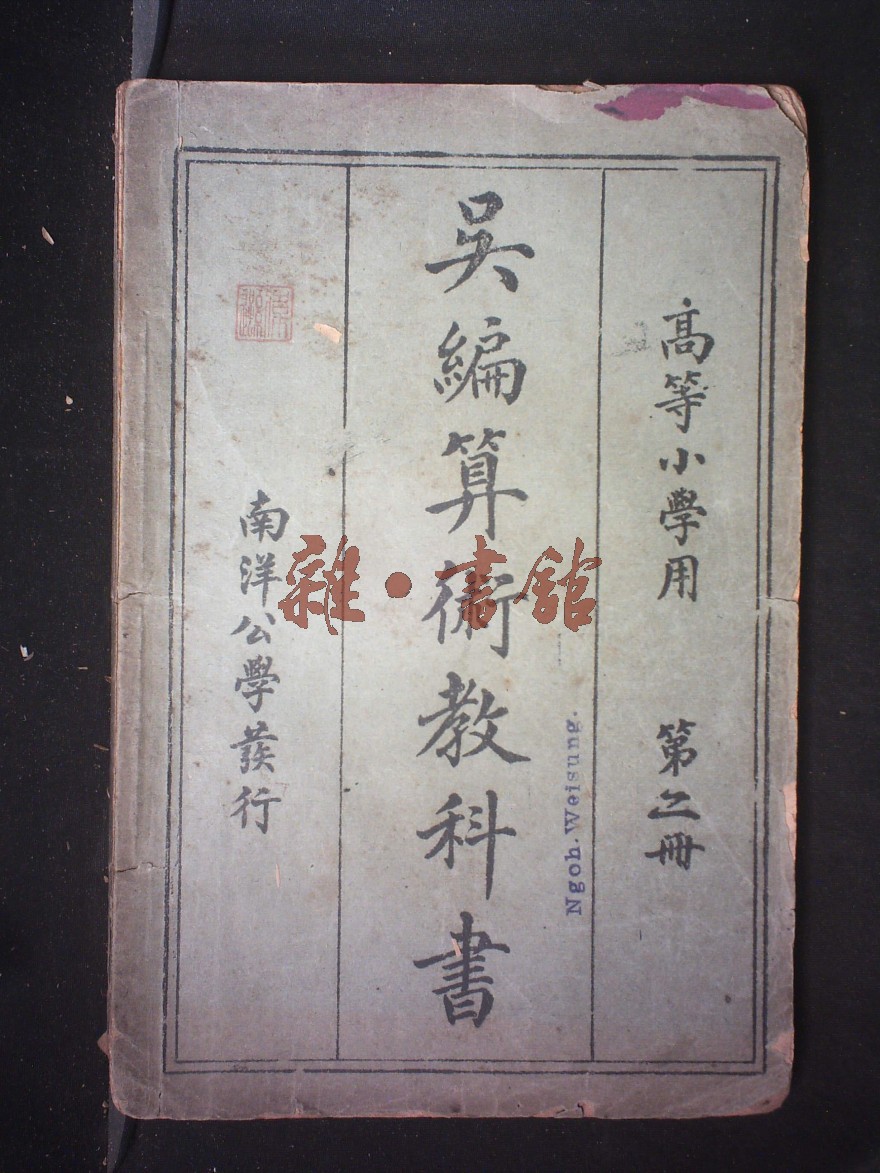 高等小學用 第二冊
吳編算術教科書
南洋公學發行
Ngoh.Weisung.
雜·書館